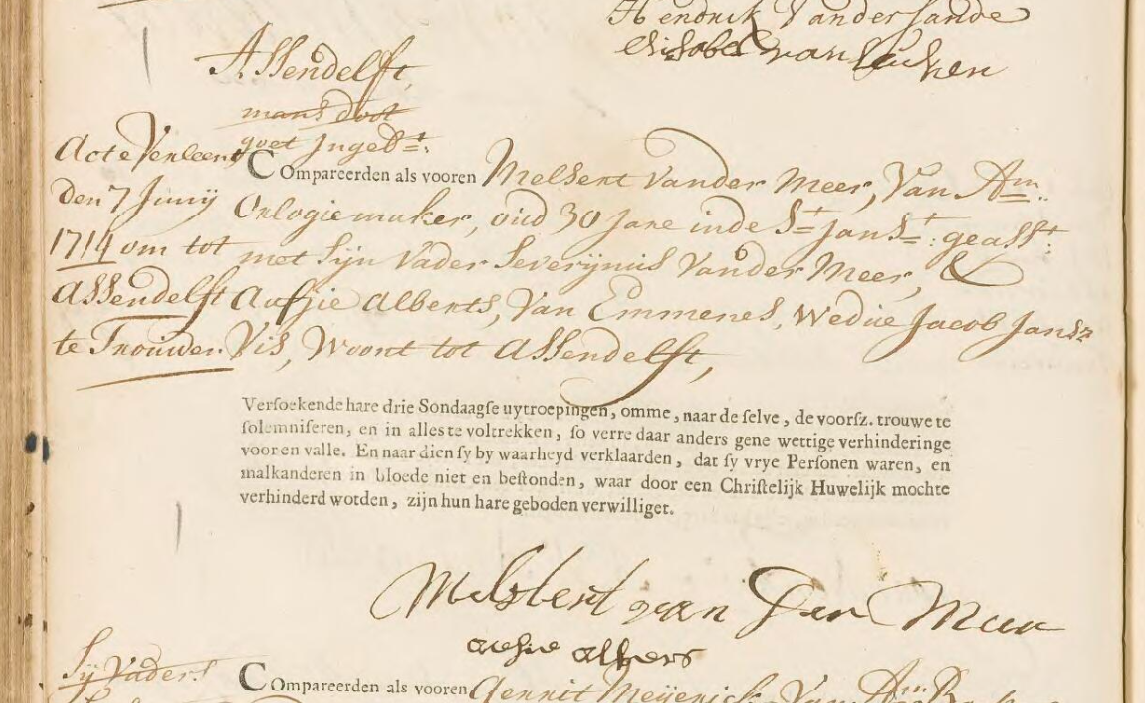 Hendrik Vander sande
Elisabet van
Assendelft,
mans doot
goet Ingebt:
Acte Verleent
den 7 Junij
1714 om tot
Assendelft
te Trouwen
Compareerden als vooren Melsert vander Meer, Van Am:
Orlogiemaker, oud 30 Jare inde St Jans t: geasst:
met Sijn Vader Severijnus Vander Meer, &
Aefjie Alberts, Van Emmenes, Wedue Jacob Jansz
Vis, Woont tot Assendelft,
Versoekende hare drie Sondaagse uytroepingen, omme, naar de selve, de voorsz. trouwe te
solemniseren, en in alles te voltrekken, so verre daar anders gene wettige verhinderinge
voor en valle. En naar dien sy by waarheyd verklaarden, dat sy vrye Personen waren, en
malkanderen in bloede niet en bestonden, waar door een Christelijk Huwelijk mochte
verhinderd worden, zijn hun hare geboden verwilliget.
Melsbert van Der Meer
aefie albers
Sij Vaders
Compareerden als vooren Gerrit Meijerick, Van